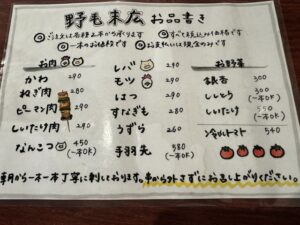 野毛末広 お品書き
◎ご注文は各種2本から承ります ◎すべて税込価格です
◎一本のお値段です ◎お支払いは現金のみです
お肉
かわ 290
ねぎ肉 280
ピーマン肉 290
しいたけ肉 290
なんこつ 450 (一本OK)
レバ 290
モツ 290
はつ 290
すなぎも 280
うずら 260
手羽先 580 (一本OK)
お野菜
長呑 300
ししとう 300 (一本OK)
しいたけ 550 (一本OK)
冷やしトマト 540
朝から一本一本丁寧に刺しております。串から外さずにお召し上がりください。